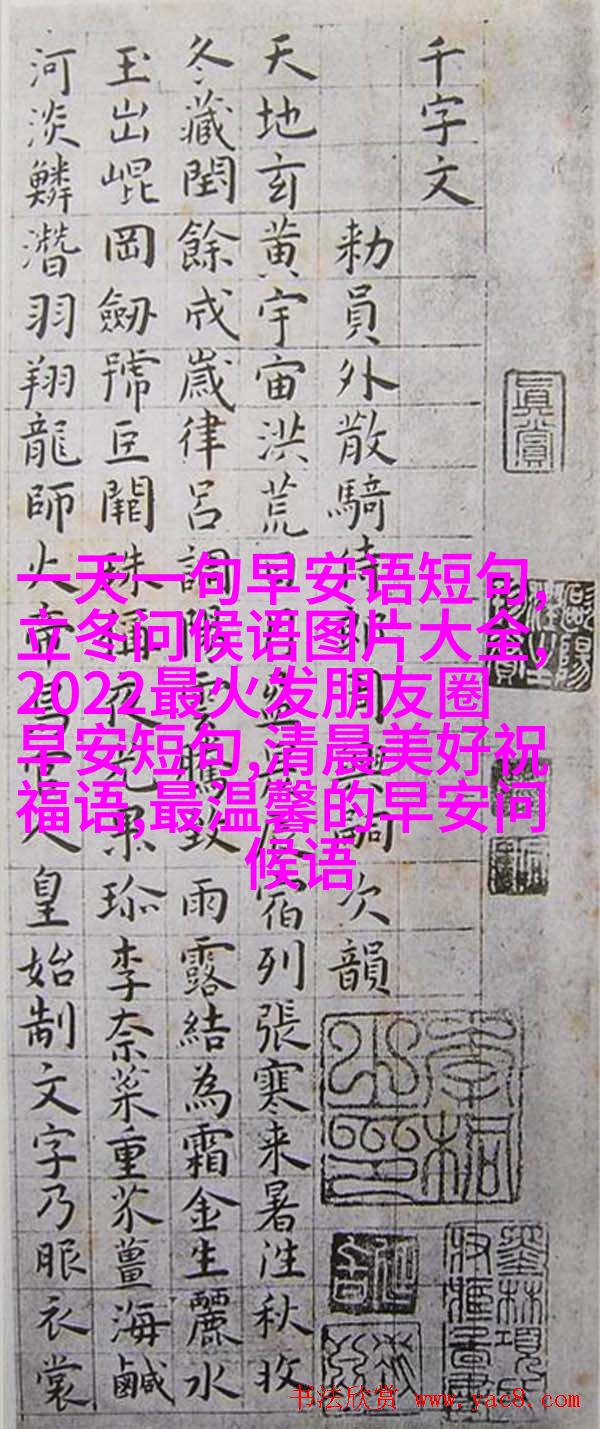 千字文
勑員外散騎侍郎周興嗣次韻
天地玄黃宇宙洪荒日月盈昃辰宿列張寒来暑往秋收
冬藏閏餘成歲律呂調陽雲騰致雨露結為霜金生麗水
玉出崐岡劒號巨闕珠稱夜光果珎李柰菜重芥薑海鹹
河淡鱗潛羽翔龍師火帝鳥官人皇始制文字乃服衣裳
真賞
一天一句早安语短句,
立冬问候语图片大全,
2022最火发朋友圈
早安短句,清晨美好祝
福语,最温馨的早安问
候语
书法欣赏 www.yac8.com